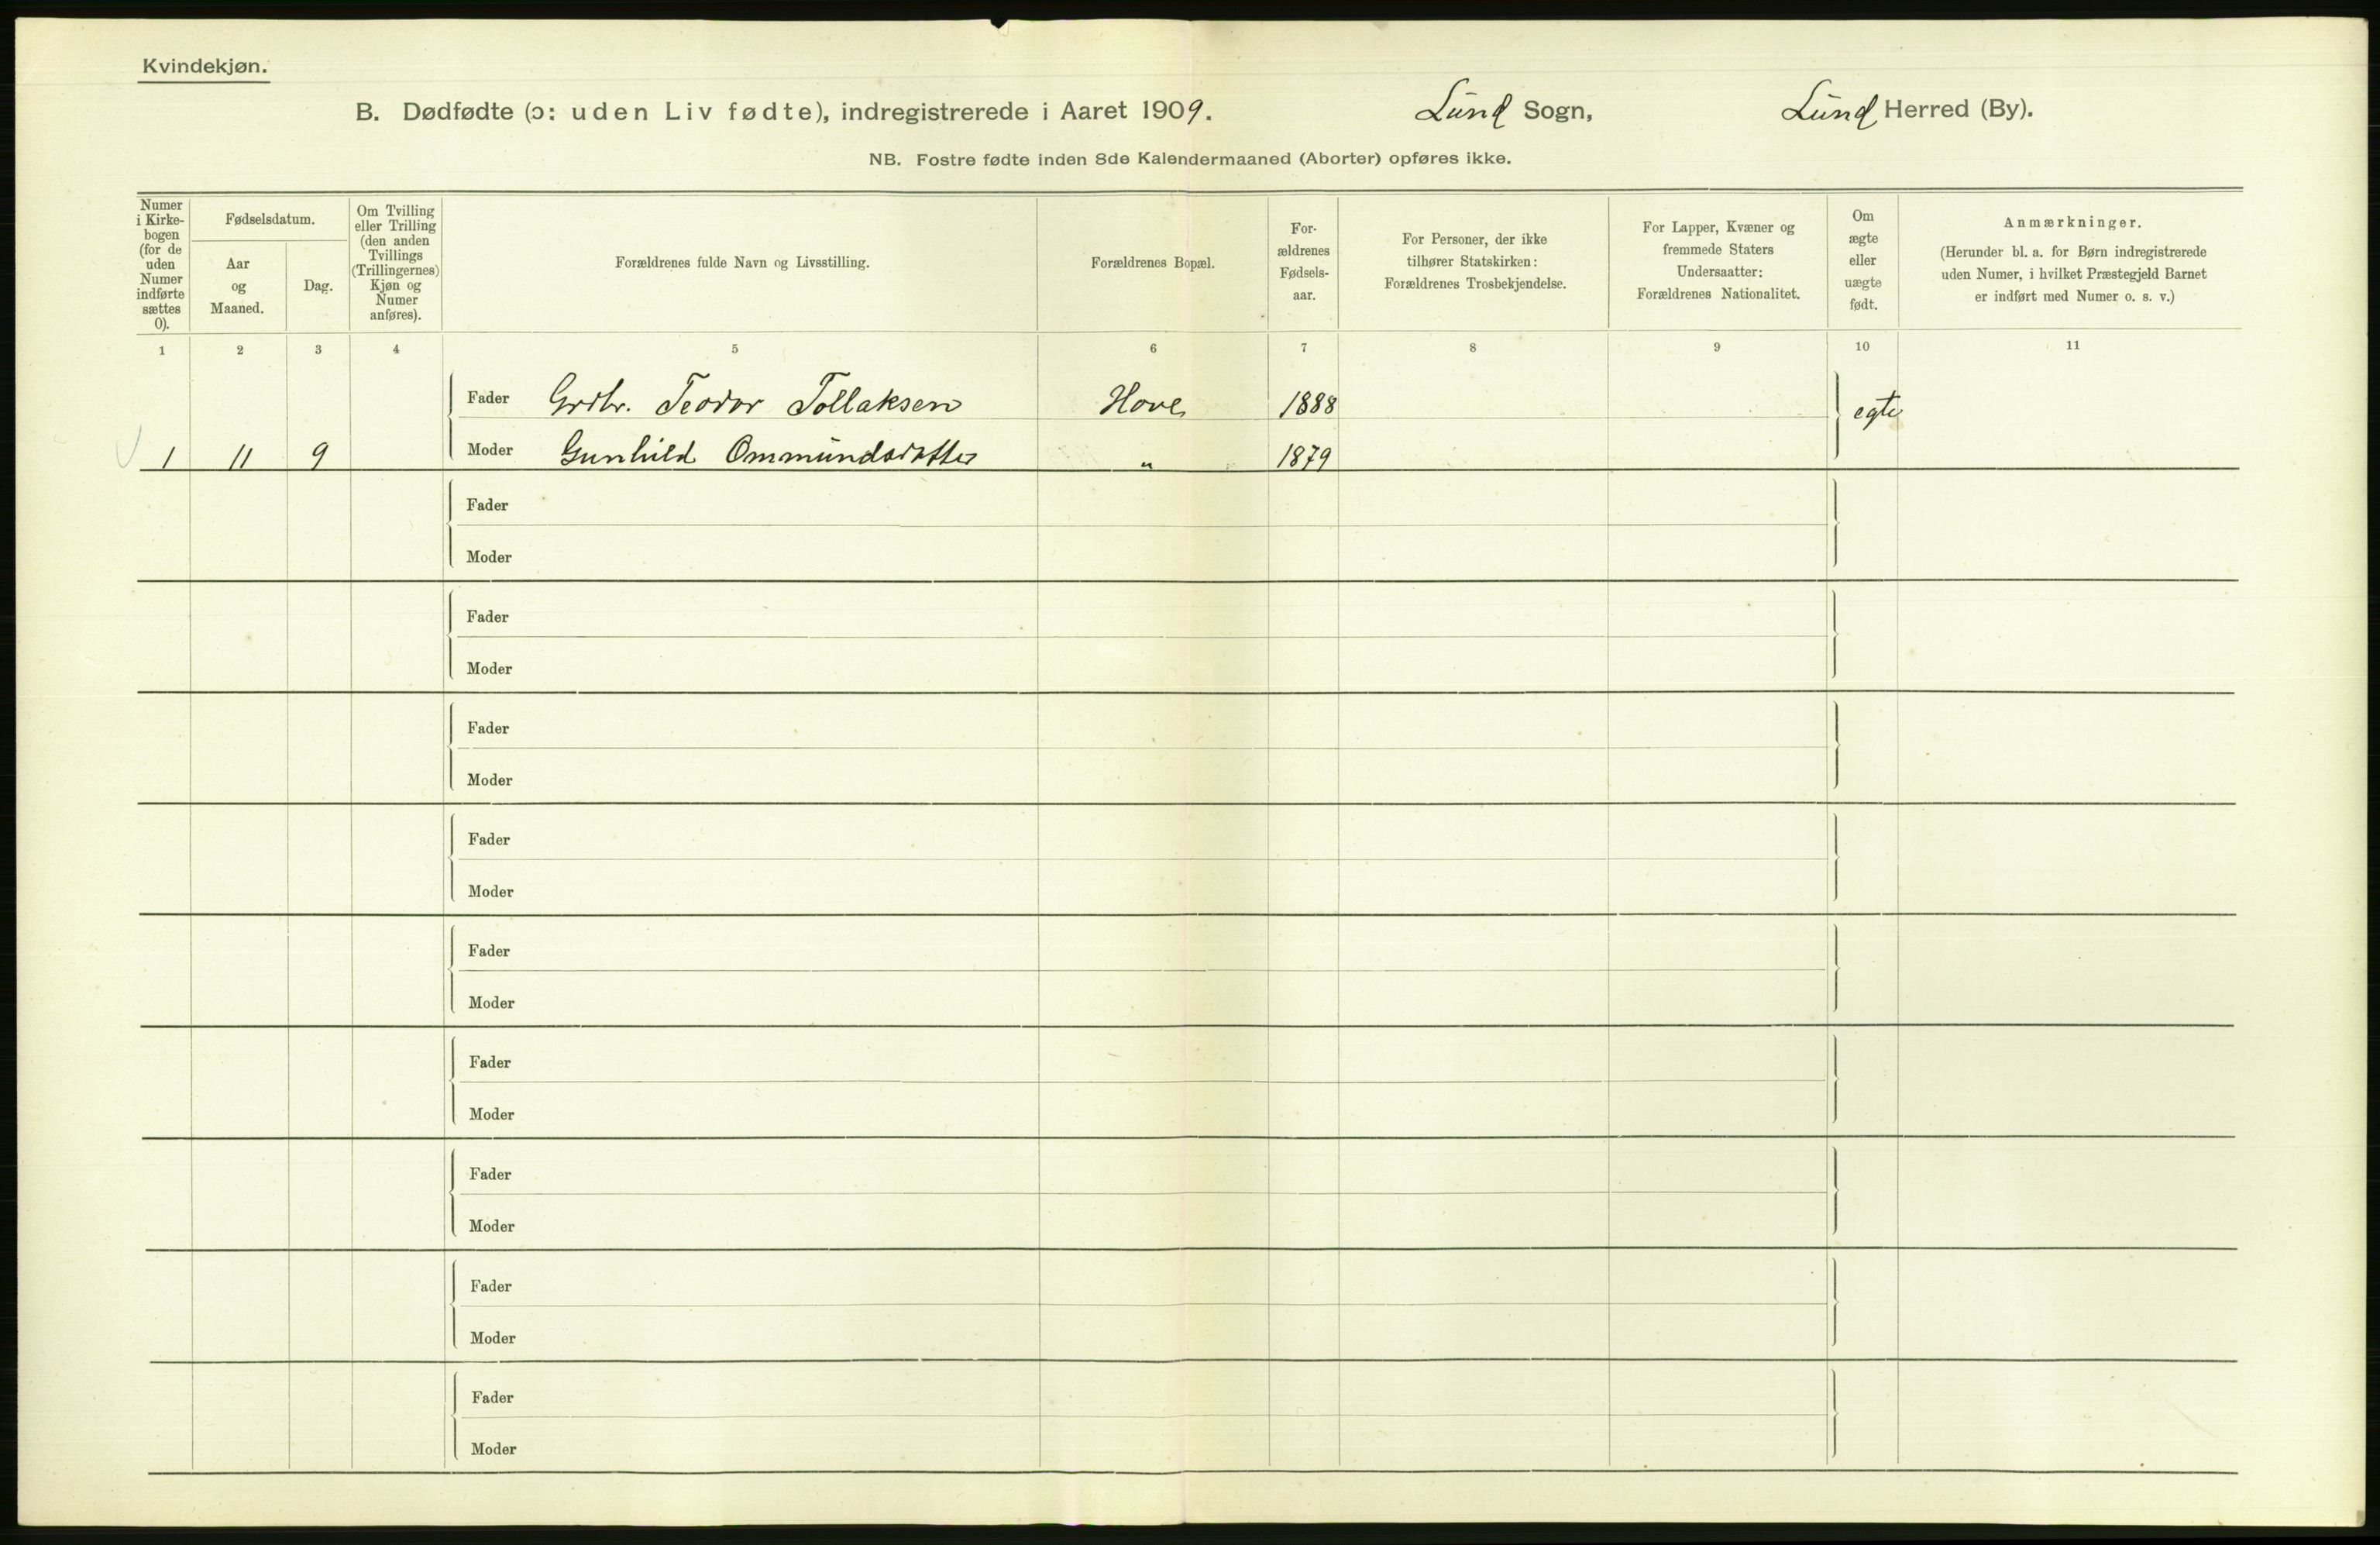 Kvindekjøn.
B. Dødfødte (ɔ: uden Liv fødte), indregistrerede i Aaret 1909. Lund Sogn, Lund Herred (By).
NB. Fostre fødte inden 8de Kalendermaaned (Aborter) opføres ikke.
Numer
i Kirke-
bogen
(for de
uden
Numer
indførte
sættes
0).
Fødselsdatum.
Aar
og
Maaned.
Dag.
Om Tvilling
eller Trilling
(den anden
Tvillings
(Trillingernes)
Kjøn og
Numer
anføres).
Forældrenes fulde Navn og Livsstilling.
Forældrenes Bopæl.
For-
ældrenes
Fødsels-
aar.
For Personer, der ikke
tilhører Statskirken:
Forældrenes Trosbekjendelse.
For Lapper, Kvæner og
fremmede Staters
Undersaatter:
Forældrenes Nationalitet.
Om
ægte
eller
uægte
født.
Anmærkninger.
(Herunder bl. a. for Børn indregistrerede
uden Numer, i hvilket Præstegjeld Barnet
er indført med Numer o. s. v.)
1 2 3 4 5 6 7 8 9 10 11
Fader Grdbr. Teodor Tollaksen Hove 1888 egte
1 11 9 Moder Gunhild Ommundsdatter " 1879
Fader
Moder
Fader
Moder
Fader
Moder
Fader
Moder
Fader
Moder
Fader
Moder
Fader
Moder
Fader
Moder
Fader
Moder